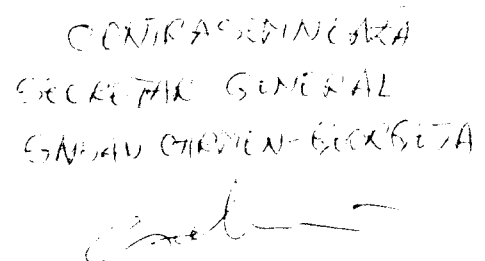 CONTRASEMNEAZĂ
SECRETAR GENERAL
CARMEN-GEORGETA